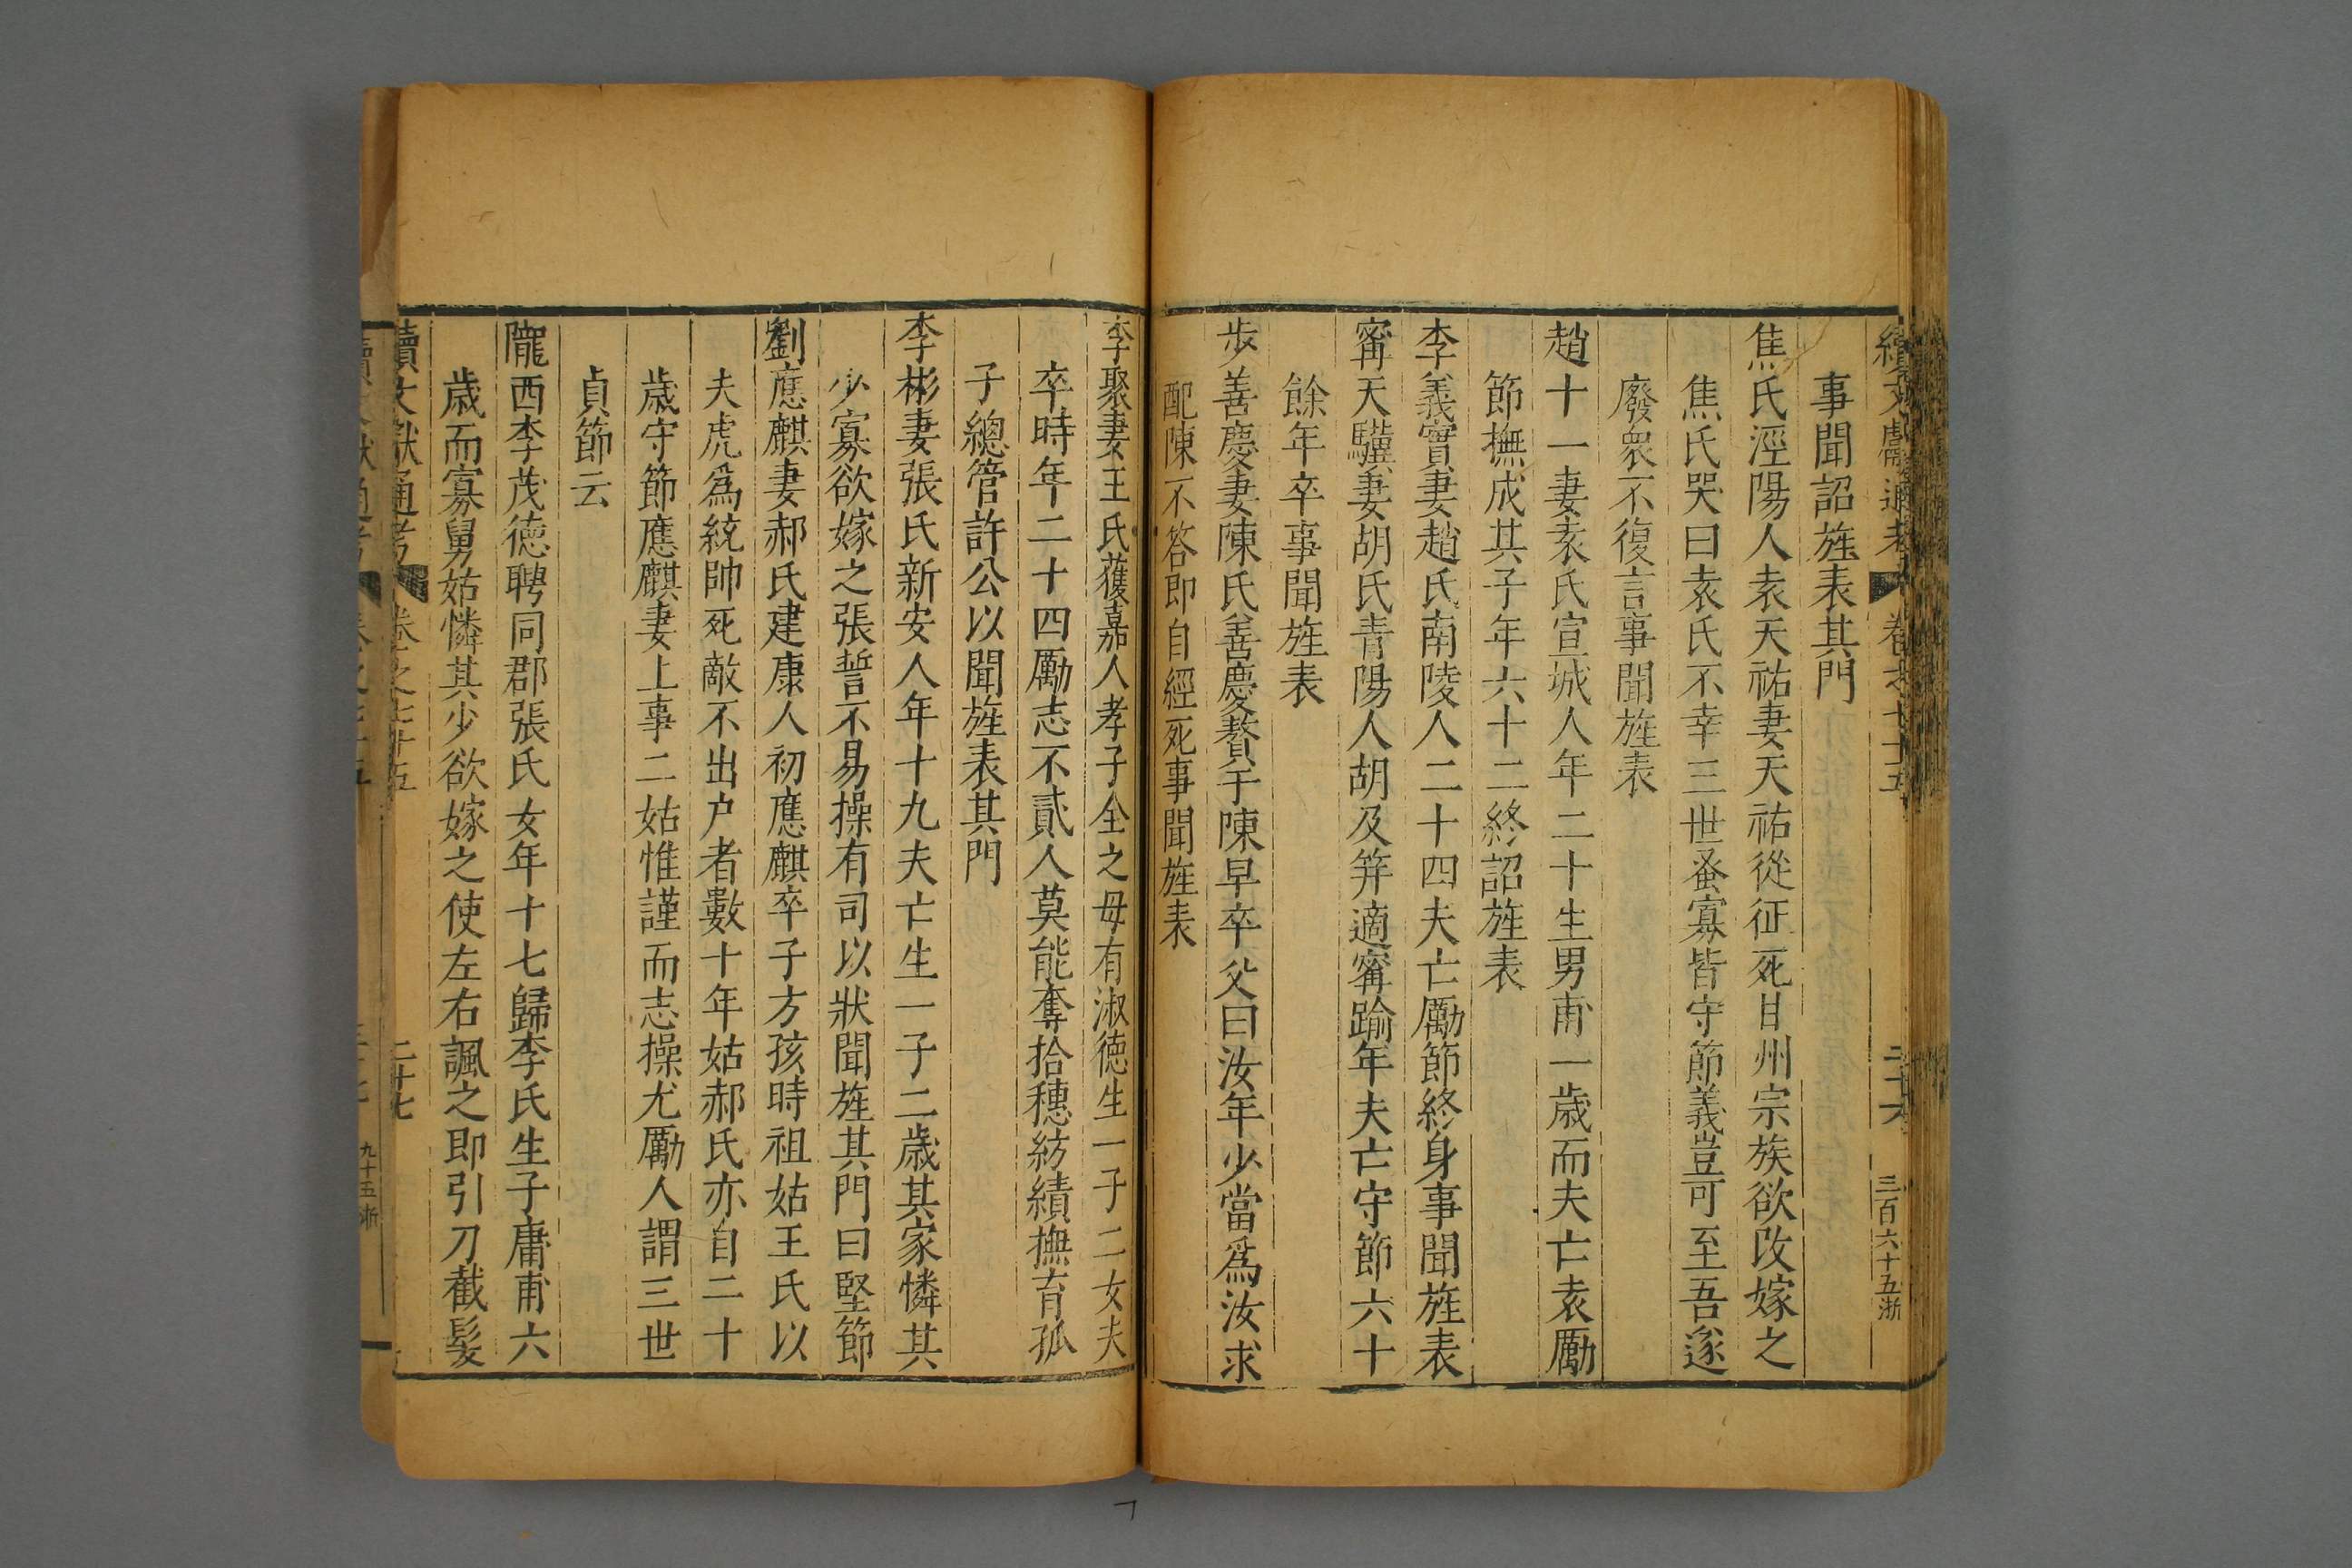 續文獻通考 卷之七十五 二十六 三百六十五浙
事聞詔旌表其門
焦氏涇陽人袁天祐妻天祐從征死甘州宗族欲改嫁之
焦氏哭曰袁氏不幸三世蚤寡皆守節義豈可至吾遂
廢衆不復言事聞旌表
趙十一妻袁氏宣城人年二十生男甫一歲而夫亡袁厲
節撫成其子年六十二終詔旌表
李義實妻趙氏南陵人二十四夫亡厲節終身事聞旌表
甯天驥妻胡氏青陽人胡及笄適甯踰年夫亡守節六十
餘年卒事聞旌表
步善慶妻陳氏善慶贅于陳早卒父曰汝年少當爲汝求
配陳不答即自經死事聞旌表
李聚妻王氏獲嘉人孝子全之母有淑德生一子二女夫
卒時年二十四勵志不貳人莫能奪拾穗紡績撫育孤
子總管許公以聞旌表其門
李彬妻張氏新安人年十九夫亡生一子二歲其家憐其
少寡欲嫁之張誓不易操有司以狀聞旌其門曰堅節
劉應麒妻郝氏建康人初應麒卒子方孩時祖姑王氏以
夫虎爲統帥死敵不出户者數十年姑郝氏亦自二十
歲守節應麒妻上事二姑惟謹而志操尤勵人謂三世
貞節云
隴西李茂德聘同郡張氏女年十七歸李氏生子庸甫六
歲而寡舅姑憐其少欲嫁之使左右諷之即引刀截髮
續文獻通考 卷之七十五 二十七
九十五浙